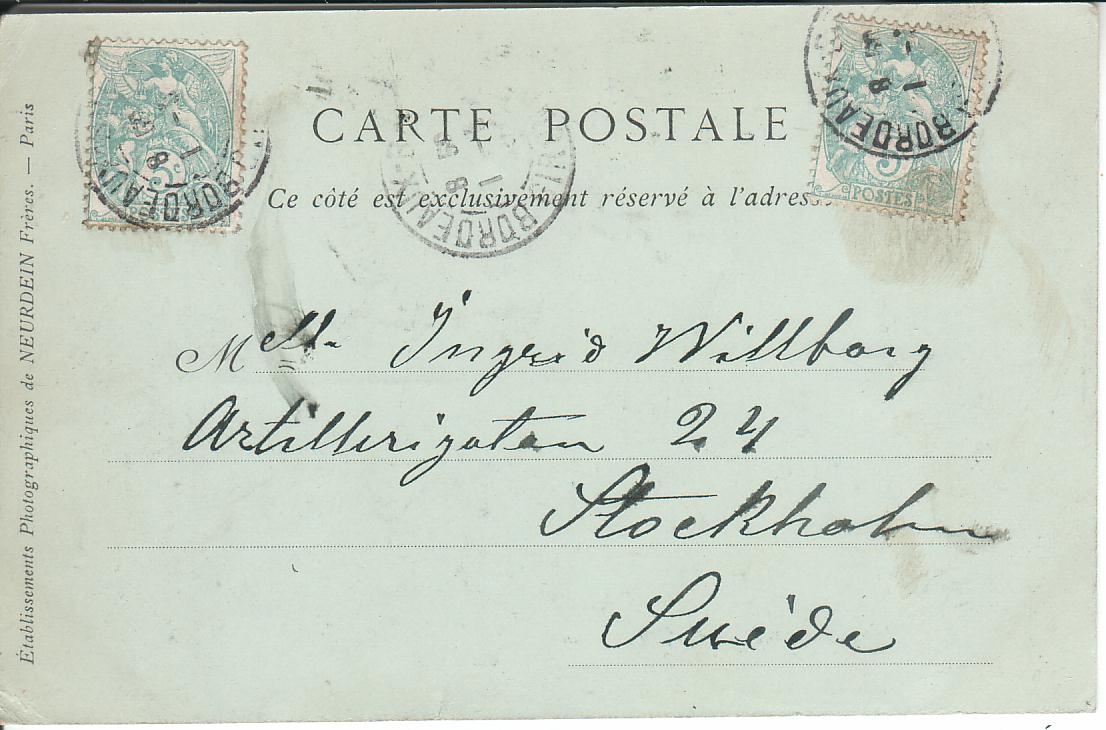 CARTE POSTALE
Ce côté est exclusivement réservé à l'adresse.
Melle Ingrid Willborg
Artillerigatan 24
Stockholm
Suède
Établissements Photographiques de NEURDEIN Frères. — Paris
5c
BORDEAUX
BORDEAUX
5
POSTES
BORDEAUX